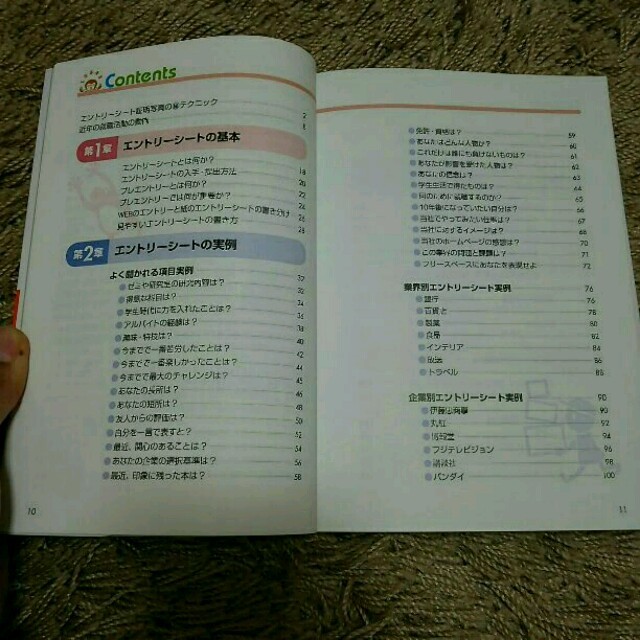 Contents
エントリーシート証明写真の㊙テクニック 2
近年の就職活動の動向 8
第1章 エントリーシートの基本
エントリーシートとは何か? 18
エントリーシートの入手・提出方法 20
プレエントリーとは何か? 22
プレエントリーでは何が重要か? 24
WEBのエントリーと紙のエントリーシートの書き分け 26
見やすいエントリーシートの書き方 28
第2章 エントリーシートの実例
よく聞かれる項目実例 32
ゼミや研究室の研究内容は? 32
得意な科目は? 34
学生時代に力を入れたことは? 36
アルバイトの経験は? 38
趣味・特技は? 40
今までで一番苦労したことは? 42
今までで一番楽しかったことは? 44
今までで最大のチャレンジは? 45
あなたの長所は? 46
あなたの短所は? 48
友人からの評価は? 50
自分を一言で表すと? 52
最近、関心のあることは? 54
あなたの企業の選択基準は? 56
最近、印象に残った本は? 58
10
免許・資格は? 59
あなたはどんな人物か? 60
これだけは誰にも負けないものは? 61
あなたが影響を受けた人物は? 62
あなたの信念は? 63
学生生活で得たものは? 64
何のために就職するのか? 65
10年後になっていたい自分は? 66
当社でやってみたい仕事は? 67
当社に対するイメージは? 68
当社のホームページの感想は? 70
この業界の問題と課題は? 71
フリースペースにあなたを表現せよ 72
業界別エントリーシート実例 76
銀行 76
百貨店 78
製薬 80
食品 82
インテリア 84
放送 86
トラベル 88
企業別エントリーシート実例 90
伊藤忠商事 90
丸紅 92
博報堂 94
フジテレビジョン 96
講談社 98
バンダイ 100
11